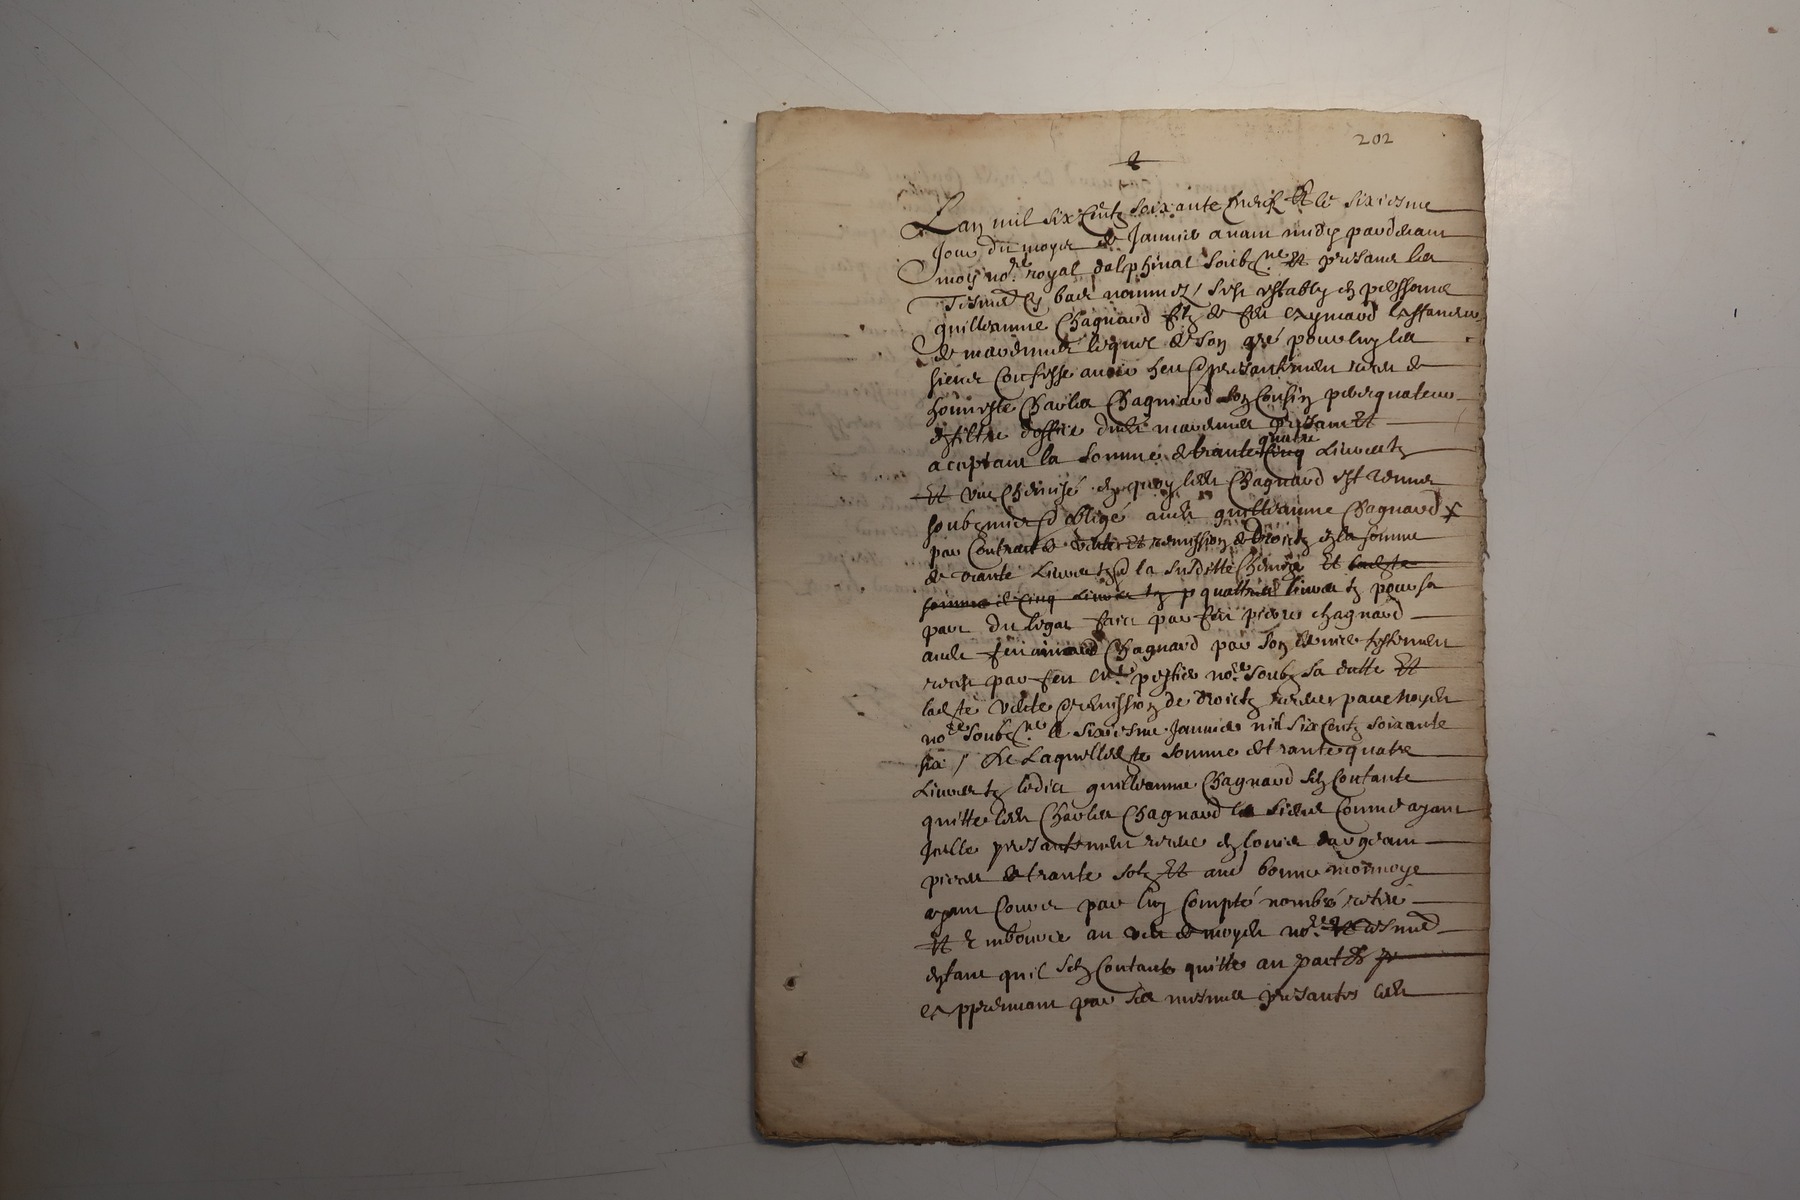 202
Lan mil six centz soixante neuf et le sixiesme
Jour du moys de Janvier avant midy pardevant
moy no.re royal delphinal soubz.ne et presans les
tesmed cy bas nommez / sest estably en personne
guilleaume Chagnard filz de feu Aymard
de lequel de son gré pour luy les
siens confesse avoir heu et presantement receu de
honneste Charles Chagniard son Cousin perequateur
present et
acceptant la somme de trante quatre cinq Livres tz
Et une Chemise en quoy ledit Chagnard est tenu
et obligé audit guilleaume Chagnard
par Contract de vante et remission de droictz en la somme
de trante Livres tz et la susditte Chemise et ladite
somme de cinq Livres tz quattre livres tz pour sa
part du legat faict par feu pierre chagnard
audit feu aimard Chagnard par son dernier testement
receu par feu Me no.re soubz sa datte Et
ladite vante et remission de droictz receue par moydit
no.re soubz.ne le sixiesme Janvier mil six centz soixante
six / De Laquelle dite somme de trante quatre
Livres tz ledict guilleaume Chagnard sen contante
quitte ledit Charles Chagnard les siens Comme ayant
Icelle presantement receue en louis dargeant
piesses de trante solz Et autre bonne monnoye
ayant Cours par luy Compté nombré retiré
Et Emboursé au veu de moydit no.re et tesmed
estant quil sen Contante quitte au
par ses mesmes presantes ledit